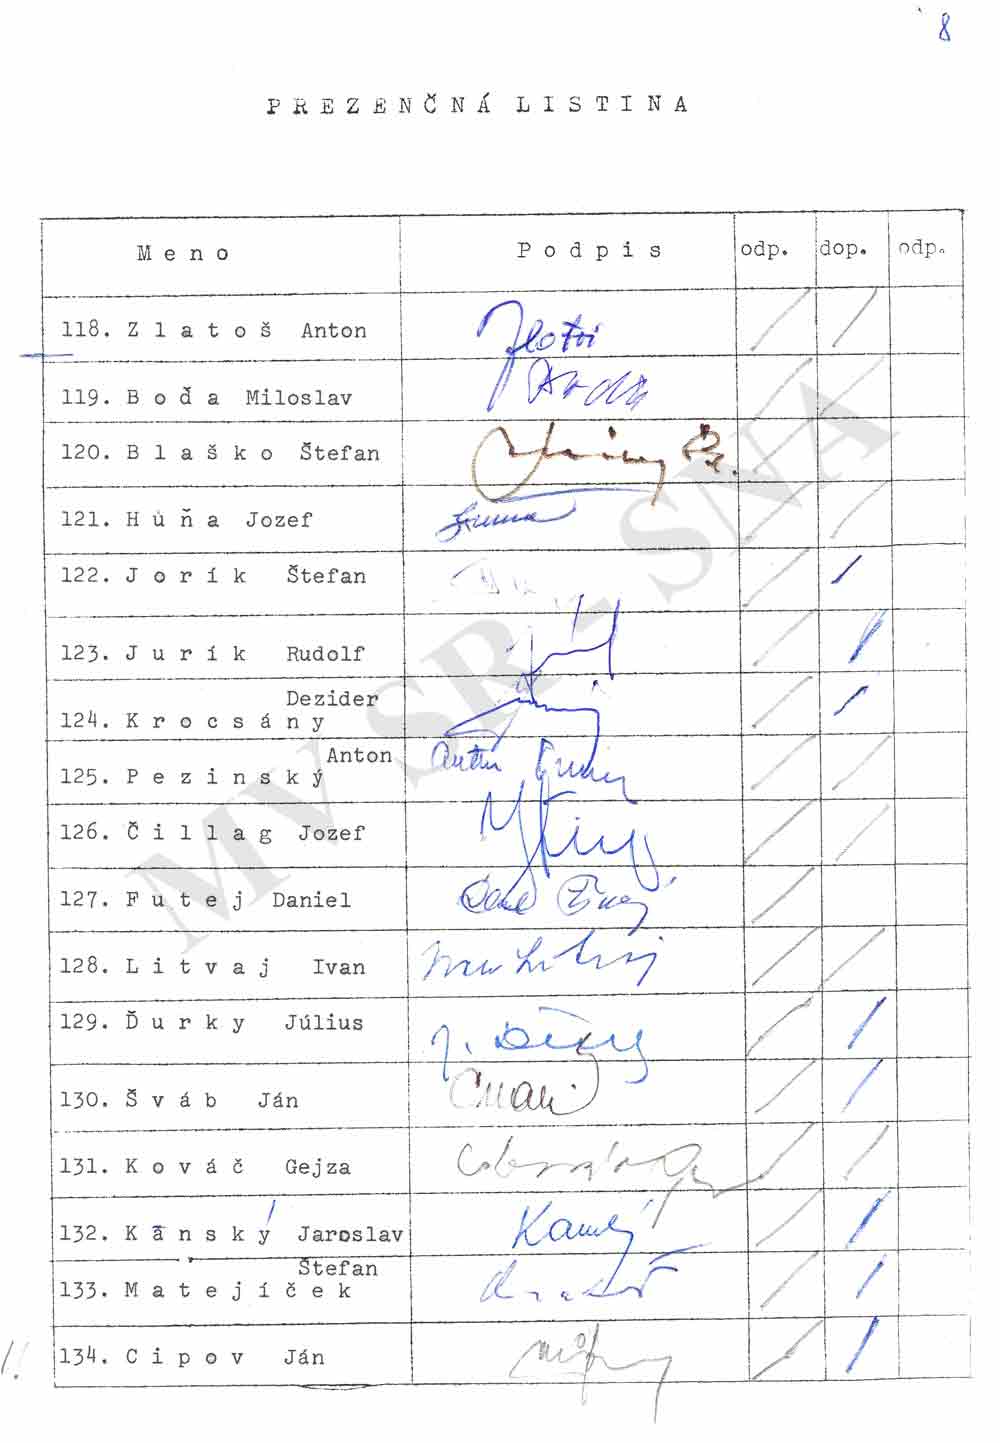 8
PREZENČNÁ LISTINA
Meno Podpis odp. dop. odp.
118. Zlatoš Anton
119. Boďa Miloslav
120. Blaško Štefan
121. Húňa Jozef
122. Jorík Štefan
123. Jurík Rudolf
Dezider
124. Krocsány
Anton
125. Pezinský
126. Čillag Jozef
127. Futej Daniel
128. Litvaj Ivan
129. Ďurky Július
130. Šváb Ján
131. Kováč Gejza
132. Kánský Jaroslav
Štefan
133. Matejíček
134. Cipov Ján
MV SR - SNA